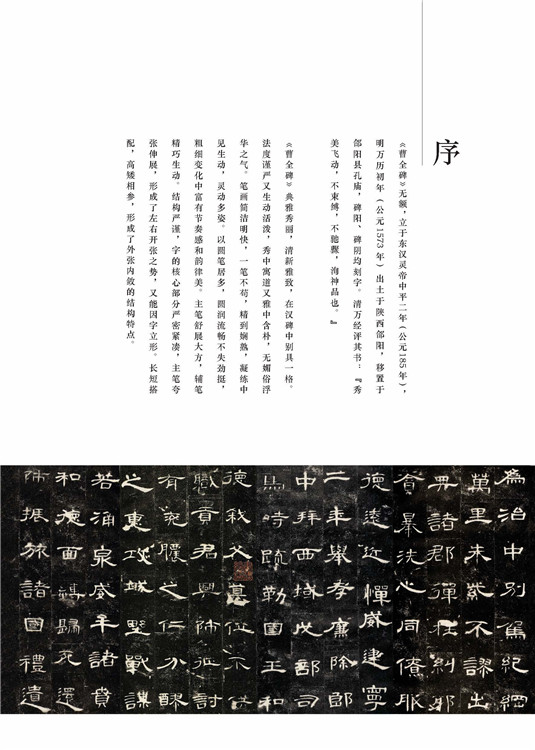 序
《曹全碑》无额，立于东汉灵帝中平二年（公元185年），
明万历初年（公元1573年）出土于陕西郃阳，移置于
郃阳县孔庙，碑阳、碑阴均刻字。清万经评其书：『秀
美飞动，不束缚，不驰骤，洵神品也。』
《曹全碑》典雅秀丽，清新雅致，在汉碑中别具一格。
法度谨严又生动活泼，秀中寓遒又雅中含朴，无媚俗浮
华之气。笔画简洁明快，一笔不苟，精到娴熟，凝练中
见生动，灵动多姿。以圆笔居多，圆润流畅不失劲挺，
粗细变化中富有节奏感和韵律美。主笔舒展大方，辅笔
精巧生动。结构严谨，字的核心部分严密紧凑，主笔夸
张伸展，形成了左右开张之势，又能因字立形。长短搭
配，高矮相参，形成了外张内敛的结构特点。
為治中別駕紀綱
萬里朱紫不謬出
典諸郡彈枉糾邪
貪暴洗心同僚服
德遠近憚威建寧
二年舉孝廉除郎
中拜西域戊部司
馬時疏勒國王和
德弒父篡位不供
職貢君興師征討
有兗膿之仁分醪
之惠攻城野戰謀
若涌泉威牟諸賁
和德面縛歸死還
師振旅諸國禮遺